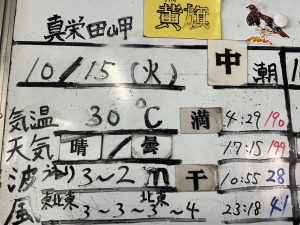 真栄田岬 黄旗
10/15(火) 中 朝 1
気温 30℃ 満 4:29 190
天気 晴/曇 17:15 199
波 3~2m 干 10:55 28
風 東北東 3~3~4 北東 23:18 41